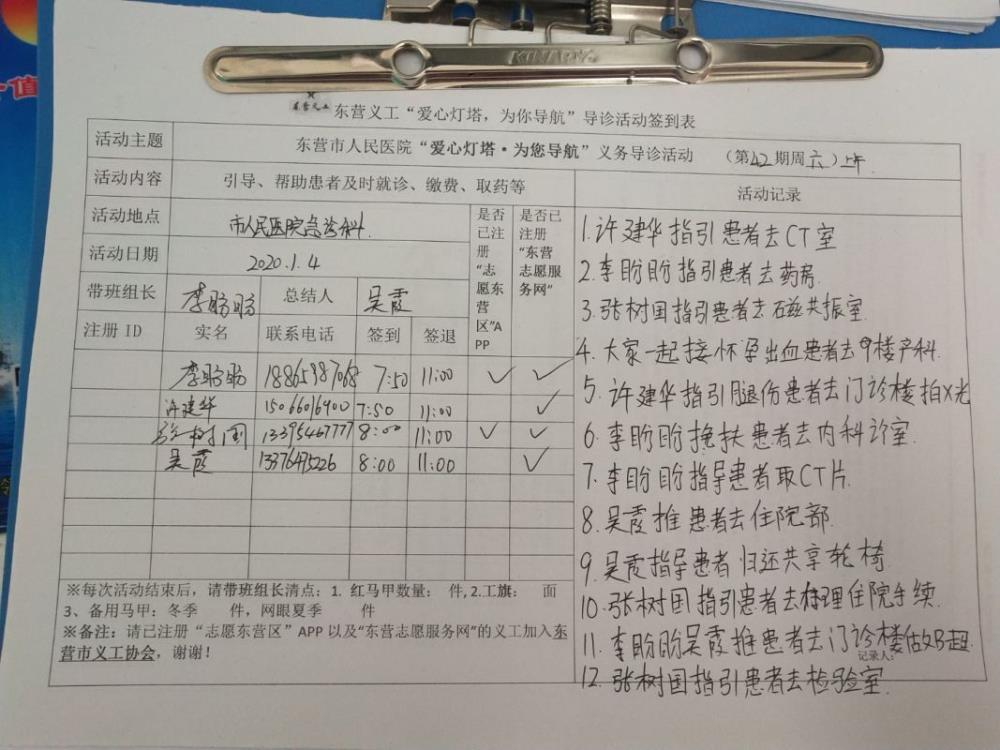 KINARY
东营义工
东营义工“爱心灯塔，为你导航”导诊活动签到表
活动主题 东营市人民医院“爱心灯塔·为您导航”义务导诊活动 （第42期周六）上午
活动内容 引导、帮助患者及时就诊、缴费、取药等 活动记录
活动地点 市人民医院急诊科.
活动日期 2020.1.4
是否已注册“志愿东营区”APP
是否已注册“东营志愿服务网”
带班组长 李盼盼 总结人 吴霞
注册 ID 实名 联系电话 签到 签退
李盼盼 18865987068 7:50 11:00 ✓ ✓
许建华 15066016900 7:50 11:00 ✓
张树国 13395467777 8:00 11:00 ✓ ✓
吴霞 13376495226 8:00 11:00 ✓
1.许建华指引患者去CT室
2.李盼盼指引患者去药房
3.张树国指引患者去石磁共振室
4.大家一起接怀孕出血患者去9楼产科.
5.许建华指引腿伤患者去门诊楼拍X光
6.李盼盼搀扶患者去内科诊室.
7.李盼盼指导患者取CT片.
8.吴霞推患者去住院部.
9.吴霞指导患者归还共享轮椅
10.张树国指引患者去办理住院手续.
11.李盼盼吴霞推患者去门诊楼做B超.
记录人：
12.张树国指引患者去检验室.
※每次活动结束后，请带班组长清点：1. 红马甲数量： 件, 2.工旗： 面
3、备用马甲：冬季 件，网眼夏季 件
※备注：请已注册“志愿东营区”APP 以及“东营志愿服务网”的义工加入东
营市义工协会，谢谢！
值